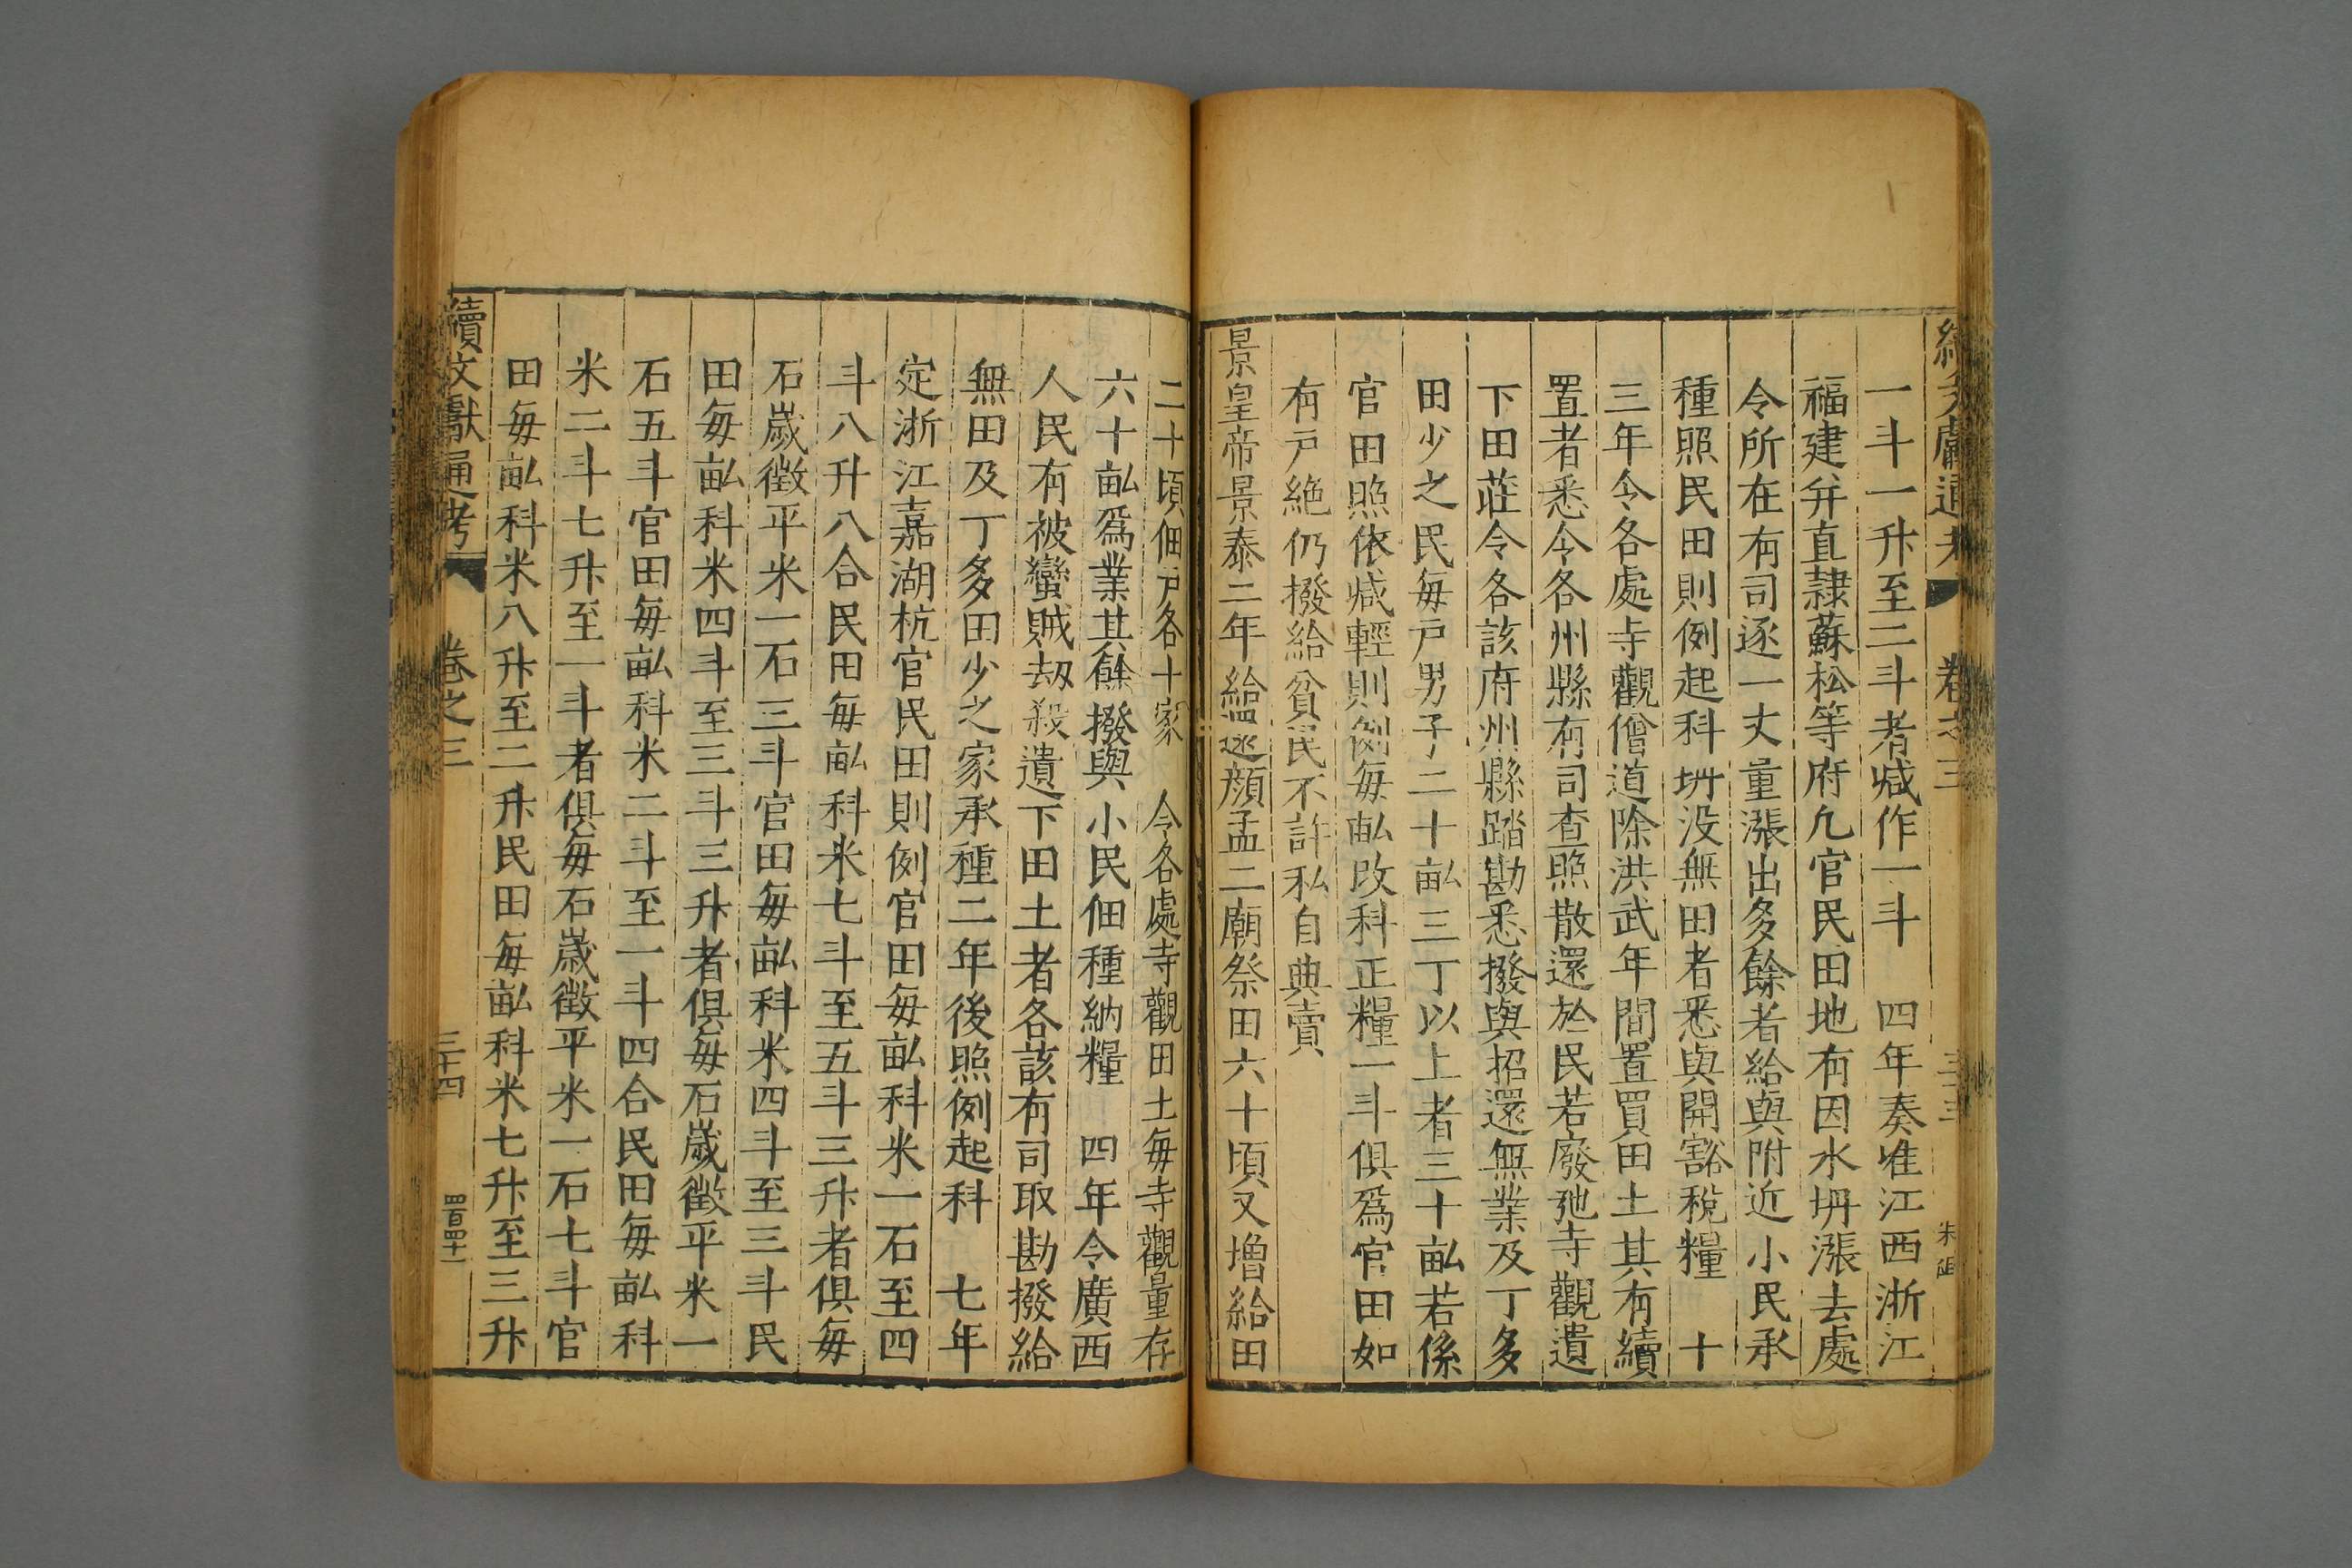 續文獻通考 卷之三 三十三
一斗一升至二斗者減作一斗 四年奏准江西浙江
福建并直隸蘇松等府凢官民田地有因水坍漲去處
令所在有司逐一丈量漲出多餘者給與附近小民承
種照民田則例起科坍没無田者悉與開豁稅糧 十
三年令各處寺觀僧道除洪武年間置買田土其有續
置者悉令各州縣有司查照散還於民若廢弛寺觀遺
下田莊令各該府州縣踏勘悉撥與招還無業及丁多
田少之民每戶男子二十畝三丁以上者三十畝若係
官田照依減輕則例每畝改科正糧一斗俱爲官田如
有戶絶仍撥給貧民不許私自典賣
景皇帝景泰二年給還顔孟二廟祭田六十頃又增給田
二十頃佃戶各十家 令各處寺觀田土每寺觀量存
六十畝爲業其餘撥與小民佃種納糧 四年令廣西
人民有被蠻賊刼殺遺下田土者各該有司取勘撥給
無田及丁多田少之家承種二年後照例起科 七年
定浙江嘉湖杭官民田則例官田每畝科米一石至四
斗八升八合民田每畝科米七斗至五斗三升者俱每
石歲徵平米一石三斗官田每畝科米四斗至三斗民
田每畝科米四斗至三斗三升者俱每石歲徵平米一
石五斗官田每畝科米二斗至一斗四合民田每畝科
米二斗七升至一斗者俱每石歲徵平米一石七斗官
田每畝科米八升至二升民田每畝科米七升至三升
續文獻通考 卷之三 三十四 四百四十一